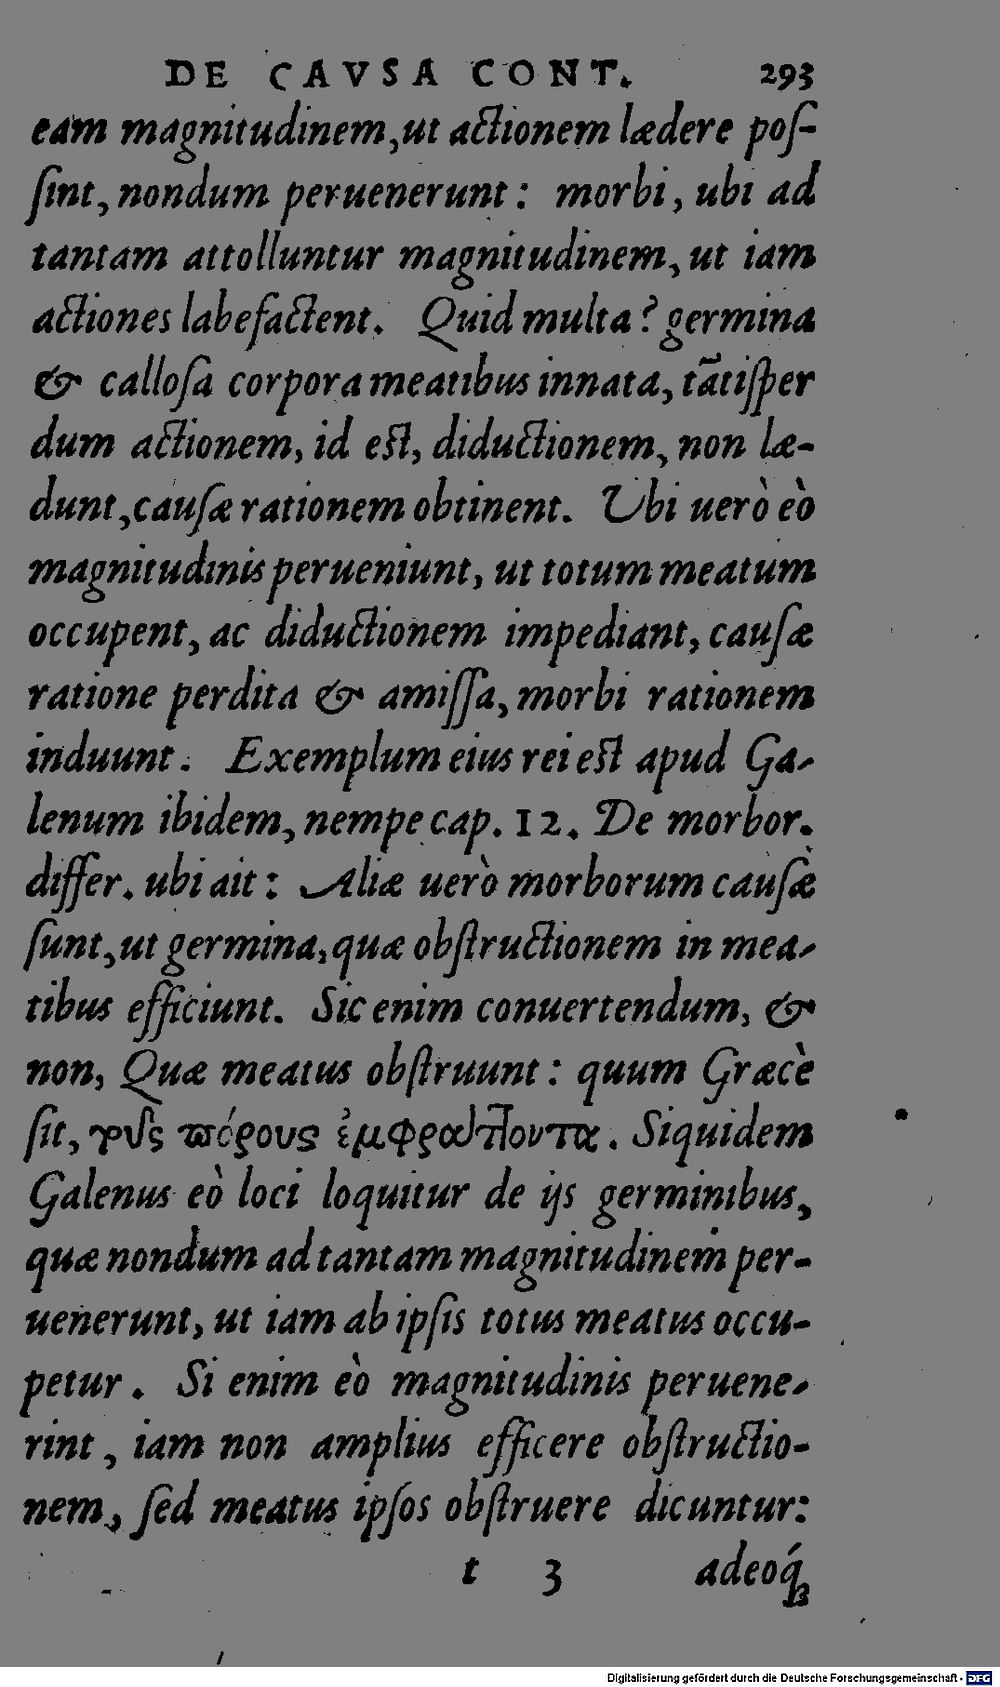 DE CAVSA CONT. 293
eam magnitudinem, ut actionem lædere pos-
sint, nondum peruenerunt: morbi, ubi ad
tantam attolluntur magnitudinem, ut iam
actiones labefactent. Quid multa? germina
& callosa corpora meatibus innata, tātisper
dum actionem, id est, diductionem, non læ-
dunt, causæ rationem obtinent. Ubi uerò eò
magnitudinis perueniunt, ut totum meatum
occupent, ac diductionem impediant, causæ
ratione perdita & amissa, morbi rationem
induunt. Exemplum eius rei est apud Ga-
lenum ibidem, nempe cap. 12. De morbor.
differ. ubi ait: Aliæ uerò morborum causæ
sunt, ut germina, quæ obstructionem in mea-
tibus efficiunt. Sic enim conuertendum, &
non, Quæ meatus obstruunt: quum Græcè
sit, τοὺς πόρους ἐμφράττοντα. Siquidem
Galenus eò loci loquitur de ijs germinibus,
quæ nondum ad tantam magnitudinem per-
uenerunt, ut iam ab ipsis totus meatus occu-
petur. Si enim eò magnitudinis peruene-
rint, iam non amplius efficere obstructio-
nem, sed meatus ipsos obstruere dicuntur:
t 3 adeoq́;
Digitalisierung gefördert durch die Deutsche Forschungsgemeinschaft - DFG